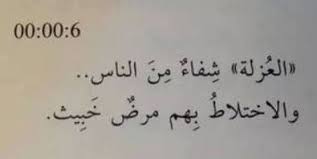 00:00:6
«العُزلة» شِفاءٌ مِنَ الناس..
والاختلاطُ بِهم مرضٌ خَبِيث.